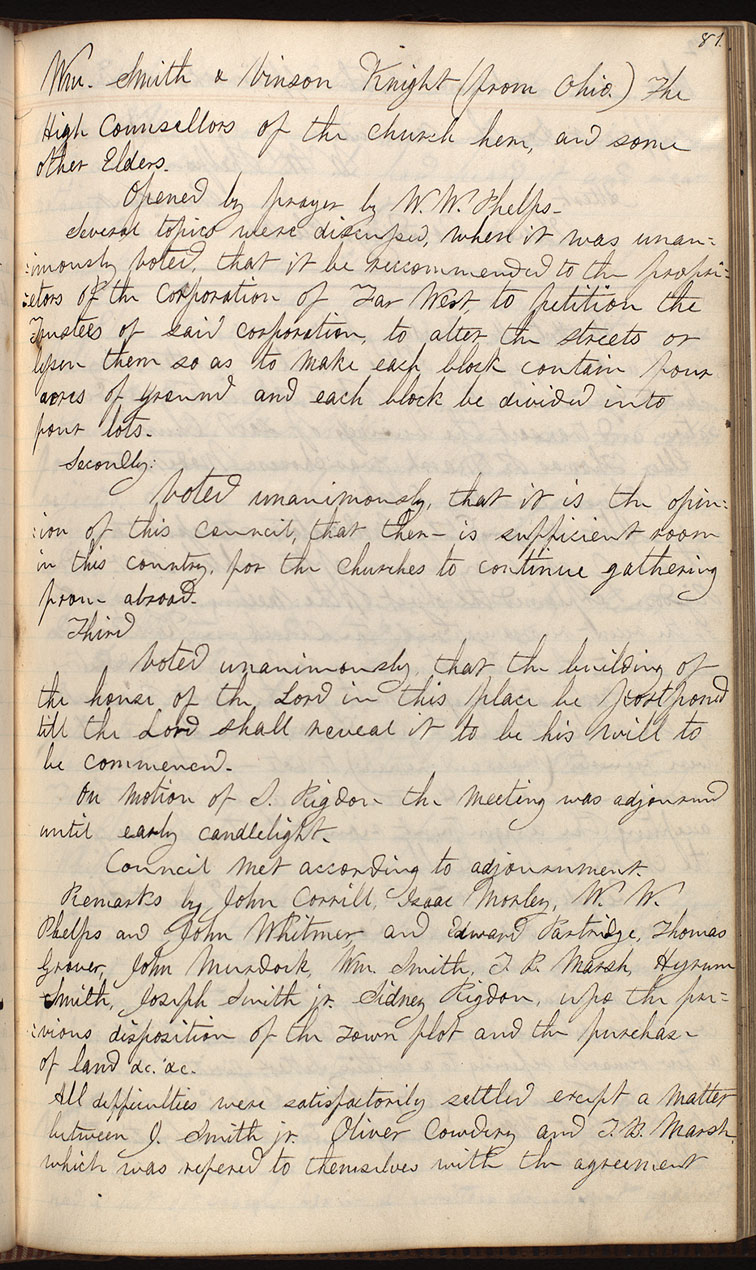 81.
Wm. Smith & Vinson Knight (from Ohio.) The
High Counsellors of the church here, and some
other Elders.
Opened by prayer by W. W. Phelps-
Several topics were discussed, when it was unan=
:imously voted, that it be reccommended to the propri=
:etors of the Corporation of Far West, to petition the
Trustees of said corporation, to alter the streets or
lysen them so as to make each block contain four
acres of ground and each block be divided into
four lots-
Secondly:
Voted unanimously, that it is the opin:
:ion of this council, that there is sufficient room
in this country, for the churches to continue gathering
from abroad-
Third
Voted unanimously, that the building of
the house of the Lord in this place be postponed
till the Lord shall reveal it to be his will to
be commenced-
On motion of S. Rigdon the meeting was adjourned
until early candlelight-
Council met according to adjournment.
Remarks by John Corrill, Isaac Morley, W. W.
Phelps and John Whitmer and Edward Partridge, Thomas
Grover, John Murdock, Wm. Smith, T. B. Marsh, Hyrum
Smith, Joseph Smith jr. Sidney Rigdon, upo the pre=
:vious disposition of the Town plot and the purchase
of land &c. &c.
All difficulties were satisfactorily settled except a matter
between J. Smith jr. Oliver Cowdery and T. B. Marsh
which was refered to themselves with the agreement